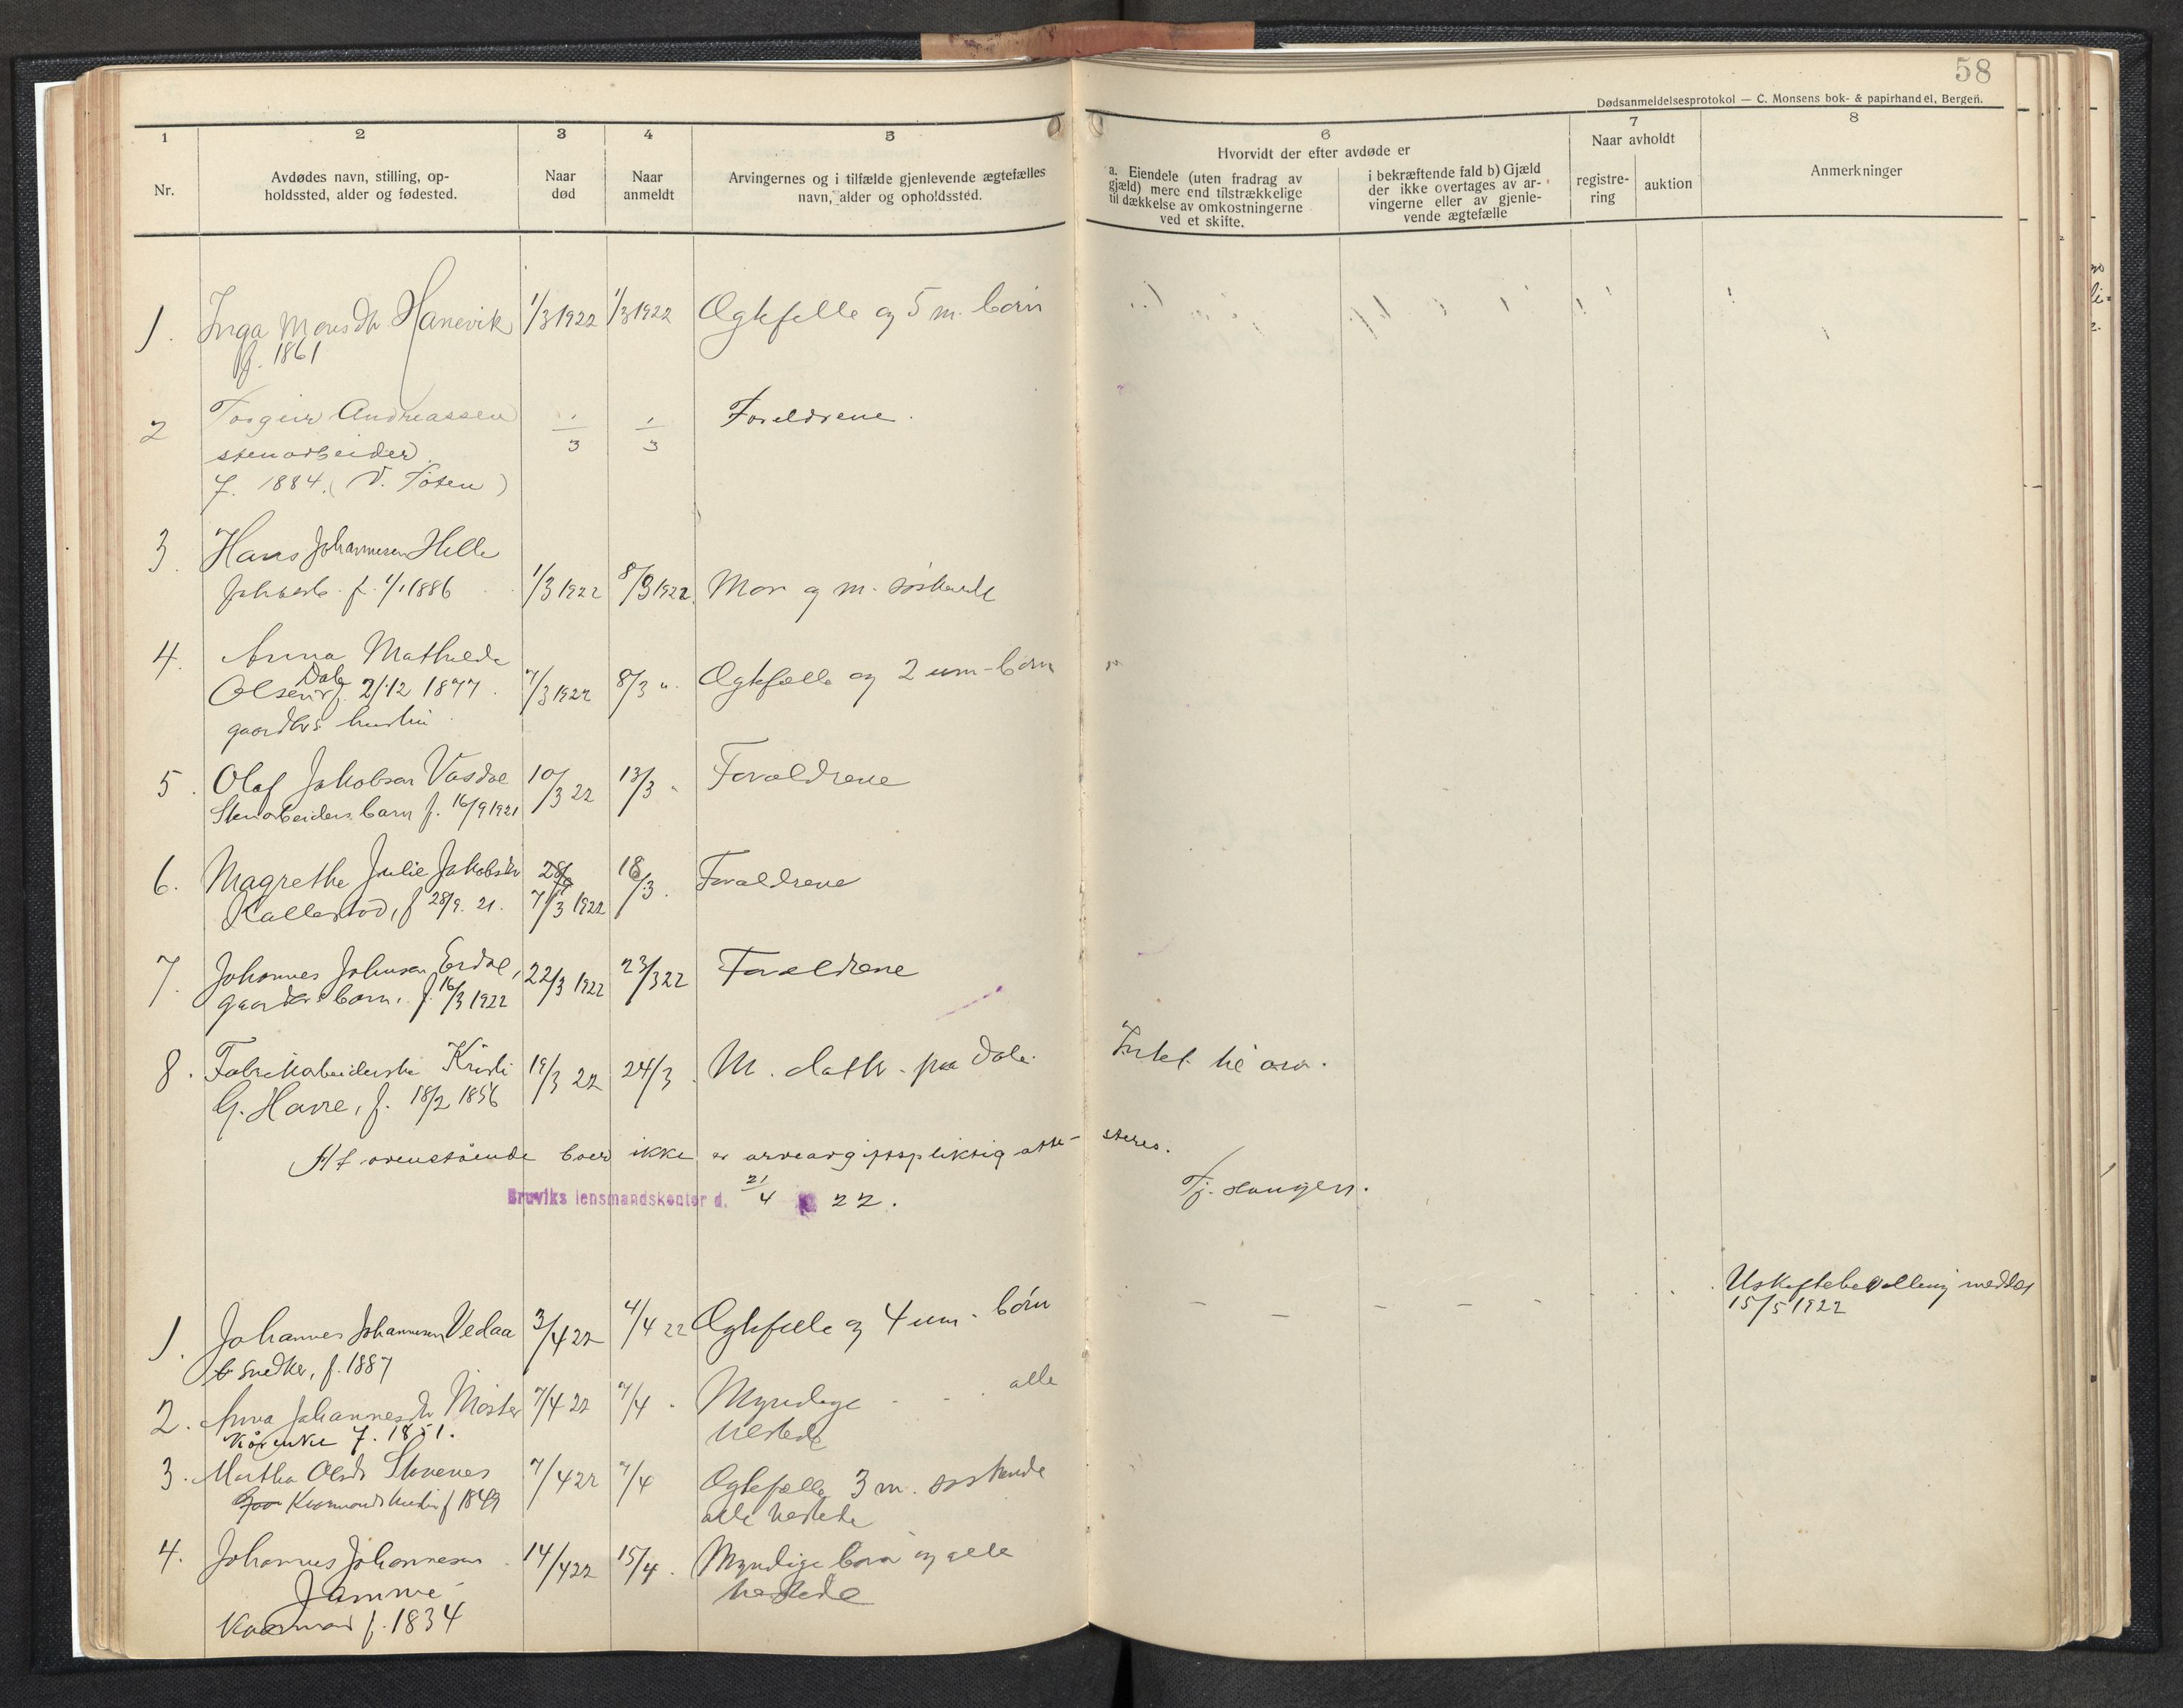 58
Dødsanmeldelsesprotokol — C. Monsens bok- & papirhandel, Bergen.
1 2 3 4 5 6 7 8
Nr.
Avdødes navn, stilling, op-
holdssted, alder og fødested.
Naar
død
Naar
anmeldt
Arvingernes og i tilfælde gjenlevende ægtefælles
navn, alder og opholdssted.
Hvorvidt der efter avdøde er
a. Eiendele (uten fradrag av
gjæld) mere end tilstrækkelige
til dækkelse av omkostningerne
ved et skifte.
i bekræftende fald b) Gjæld
der ikke overtages av ar-
vingerne eller av gjenle-
vende ægtefælle
Naar avholdt
registre-
ring
auktion
Anmerkninger
1. Inga Monsdtr Hanevik 1/3 1922 1/3 1922 Ægtefelle og 5 m. börn
f. 1861
2 Torgeir Andreassen 1/3 1/3 Foreldrene.
stenarbeider
f. 1884. (V. Toten)
3. Hans Johannesen Helle
f. 1/1 1886 1/3 1922 8/3 1922 Mor og m. söskende
4. Anna Mathilde
Olsen Dale f. 2/12 1877. 7/3 1922 8/3 " Ægtefælle og 2 um-börn
gaardbrs hustru
5. Olaf Jakobsen Vasdal 10/3 22 13/3 " Forældrene
Stenarbeiders barn f. 16/9 1921
6. Magrethe Julie Jakobsdtr 28/9 18/3. Forældrene
Kallestad, f 28/9. 21. 7/3 1922
7. Johannes Johnsen Erdal, 22/3 1922 23/3 22 Forældrene
gaardbr barn. f. 16/3 1922
8. Fabrikarbeiderske Kristi 19/3 22 24/3. M. datter paa Dale. Intet til arv.
G. Havre, f. 18/2 1856
At ovenstående boer ikke er arveavgiftspliktig atte- steres.
Bruviks lensmandskontor d. 21/4 22.
Tj. Haugen.
1. Johannes Johannesen Vedaa 3/4 22 4/4 22 Ægtefælle og 4 um. börn Uskiftebevilling meddelt
snedker, f. 1887 15/5 1922
2. Anna Johannesdtr Moster 7/4 22 7/4 " Myndige - alle
kårenke f. 1851. tilstede
3. Martha Olsdtr 7/4 22 7/4 Ægtefælle 3 m. söskende
Kaarmands hustru f 1849 alle tilstede
4. Johannes Johannesen 14/4 22 15/4. Myndige barn og alle
Jamne tilstede
Kaarmand f. 1834